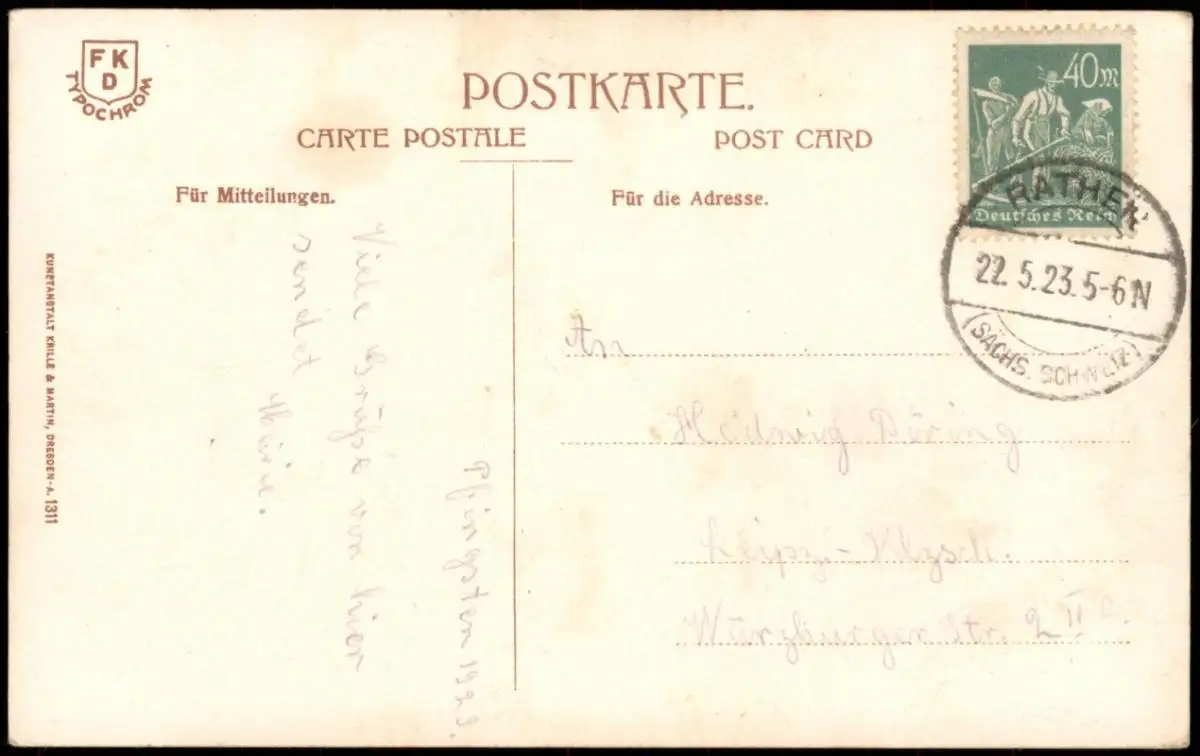 FK
D
TYPOCHROM
POSTKARTE.
CARTE POSTALE
POST CARD
Für Mitteilungen.
Für die Adresse.
40 m
Deutsches Reich
RATHEN
22.5.23.5-6N
(SÄCHS. SCHWEIZ)
KUNSTANSTALT KRILLE & MARTIN, DRESDEN-A. 1311
Pfingsten 1923.
Viele Grüße von hier
sendet
An
Hedwig Düring
Leipz.-Klzsch.
Würzburger Str. 2 II